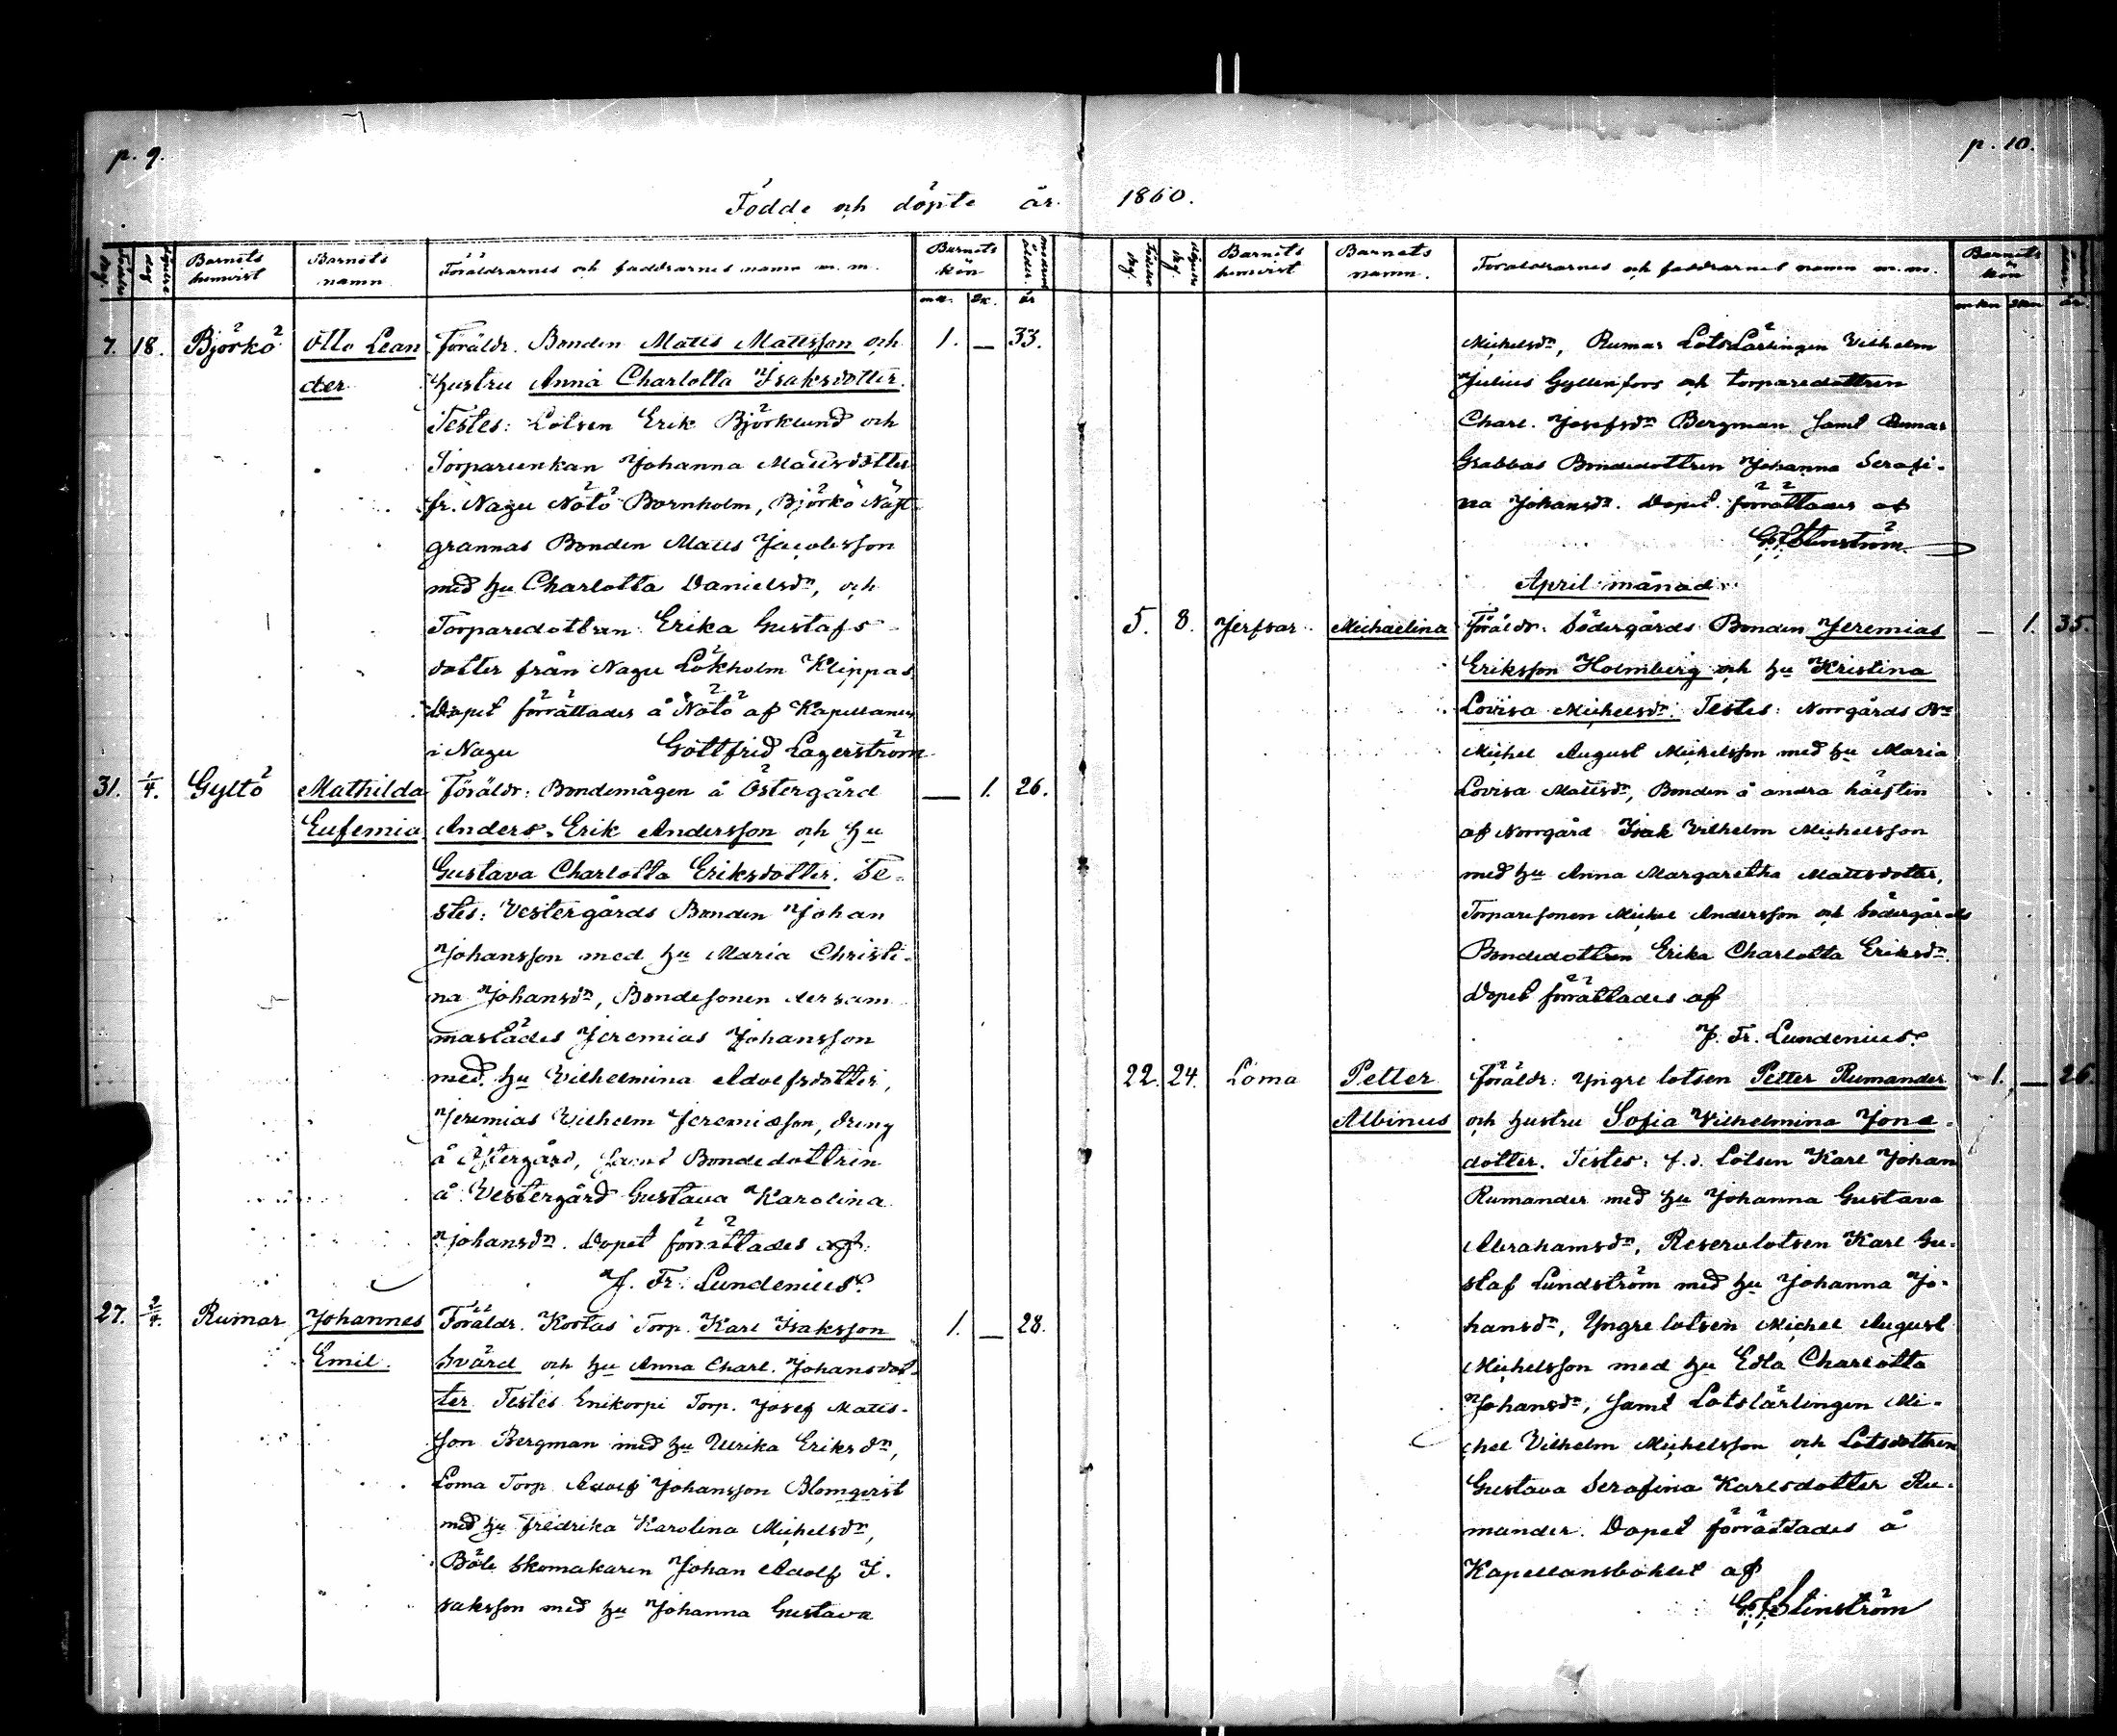 p. 9.
p. 10.
Födde och döpte år 1860.
Födelse dag
Döpelse dag
Barnets hemvist
Barnets namn
Föräldrarnes och faddrarnes namn m. m.
Barnets kön
mk. qk.
Modrens ålder. år
7. 18. Björkö Otto Lean Föräldr. Bonden Matts Mattsson och 1. — 33.
der hustru Anna Charlotta Isaksdotter.
Testes: Lotsen Erik Björklund och
Torparenkan Johanna Mattsdotter
fr. Nagu Nötö Bornholm, Björkö Näst
grannas Bonden Matts Jacobsson
med hu Charlotta Danielsdr, och
Torparedottren Erika Gustafs
dotter från Nagu Lökholm Klippas
Dopet förrättades å Nötö af Kapellanen
i Nagu Gottfrid Lagerström
31. 1/4. Gyltö Mathilda Föräldr: Bondemågen å Östergård — 1. 26.
Eufemia Anders Erik Andersson och hu
Gustava Charlotta Eriksdotter. Te-
stes: Vestergårds Bonden Johan
Johansson med hu Maria Christi-
na Johansdr, Bondesonen dersam
mastädes Jeremias Johansson
med hu Vilhelmina Adolfsdotter,
Jeremias Vilhelm Jeremiasson, dreng
å Östergård, samt Bondedottren
å Vestergård Gustava Karolina
Johansdr. Dopet förrättades af:
J. Fr. Lundenius.
27. 2/4. Rumar Johannes Föräldr. Kortas Torp. Karl Isaksson 1. — 28.
Emil. Svärd och hu Anna Charl. Johansdot-
ter Testes Enikorpi Torp. Josef Matts-
son Bergman med hu Ulrika Eriksdr,
Loma Torp. Adolf Johansson Blomqvist
med hu Fredrika Karolina Michelsdr,
Böle Skomakaren Johan Adolf I-
saksson med hu Johanna Gustava
Födelse dag.
Döpelse dag.
Barnets hemvist
Barnets namn.
Föräldrarnes och faddrarnes namn m. m.
Barnets kön
år.
Michelsdr, Rumar LotsLärlingen Vilhelm
Julius Gyllenfors och torparedottren
Charl. Josefsdr Bergman samt Rumar
Grabbas Bondedottren Johanna Serafi-
na Johansdr. Dopet förrättades af
April månad
5. 8. Jerfsar Michaelina Föräldr. Södergårds Bonden Jeremias — 1. 35.
Eriksson Holmberg och hu Kristina
Lovisa Michelsdr. Testes: Norrgårds Bn
Michel August Michelsson med hu Maria
Lovisa Mattsdr, Bonden å andra hälften
af Norrgård Isak Vilhelm Michelsson
med hu Anna Margaretha Mattsdotter,
Torparesonen Michel Andersson och Södergårds
Bondedottren Erika Charlotta Eriksdr.
Dopet förrättades af
J. Fr. Lundenius.
22. 24. Loma Petter Föräldr: Yngre lotsen Petter Rumander 1. — 26.
Albinus och hustru Sofia Vilhelmina Jona-
dotter. Testes: f. d. Lotsen Karl Johan
Rumander med hu Johanna Gustava
Abrahamsdr, Reservlotsen Karl Gu-
staf Lundström med hu Johanna Jo-
hansdr, Yngre lotsen Michel August
Michelsson med hu Edla Charlotta
Johansdr, samt Lotslärlingen Mi-
chel Vilhelm Michelsson och Lotsdottren
Gustava Serafina Karlsdotter Ru-
mander. Dopet förrättades å
Kapellansbohlet af